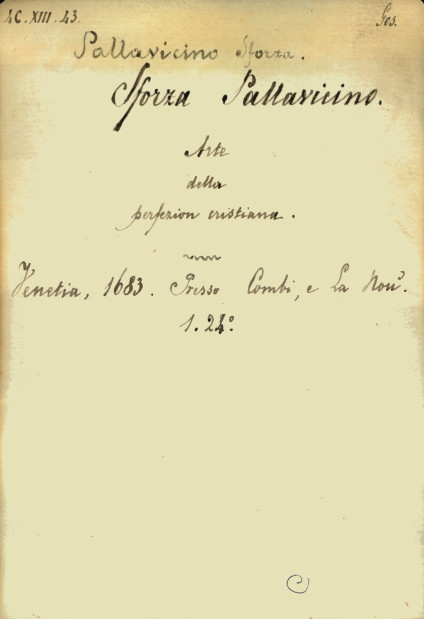 4C.XIII.43.
Ges.
Pallavicino Sforza.
Sforza Pallavicino.
Arte
della
perfezion cristiana.
Venetia, 1683. Presso Combi, e La Nou'.
1. 24º.